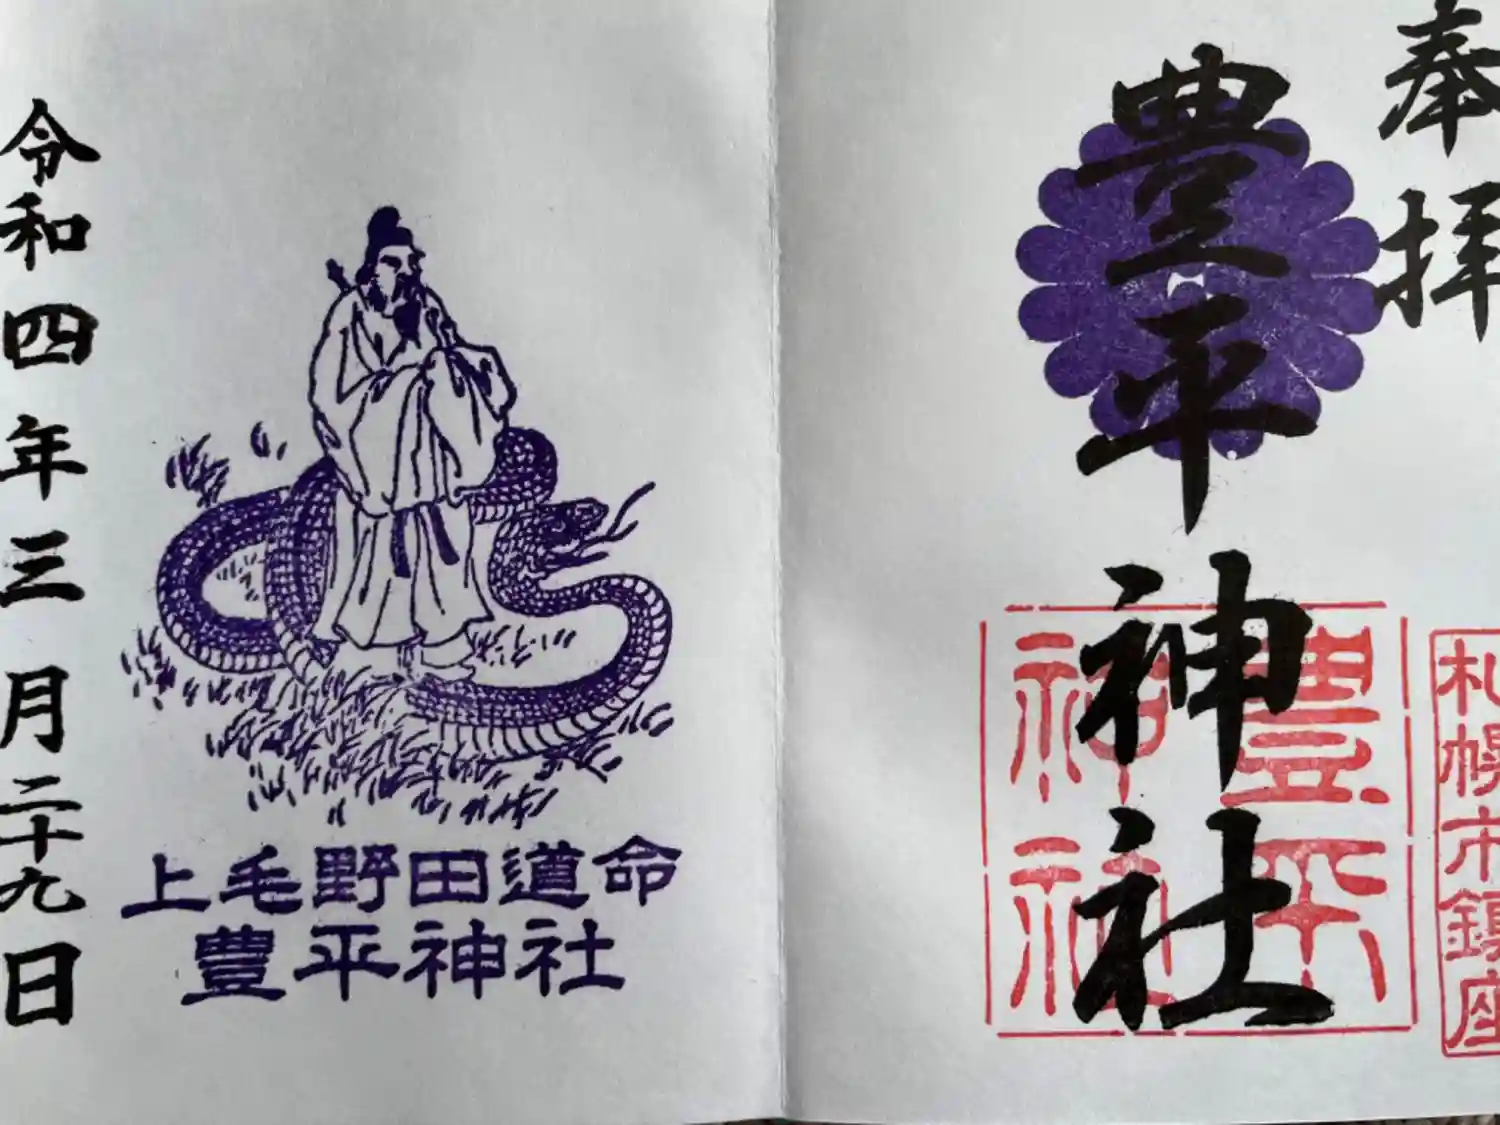 奉拝
豊平神社
豊平
神社
札幌市鎮座
令和四年三月二十九日
上毛野田道命
豊平神社